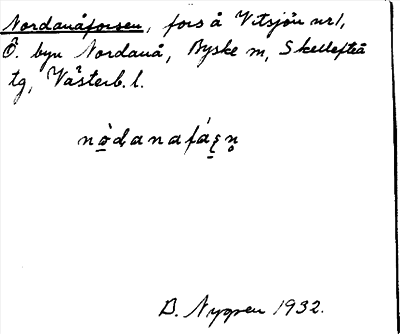 Nordanåforsen, fors å Vitsjön nr 1,
Ö. byn Nordanå, Byske m, Skellefteå
tg, Västerb. l.
B. Nygren 1932.